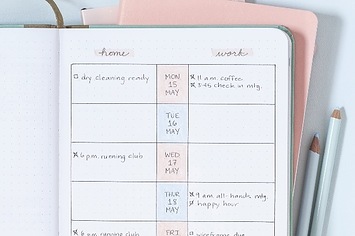 home
work
dry cleaning ready
MON
15
MAY
11 a.m. coffee
3:45 check in mtg.
TUE
16
MAY
6 p.m. running club
WED
17
MAY
THUR
18
MAY
9 a.m. all-hands mtg.
happy hour
6 p.m. running club
FRI
wireframe due